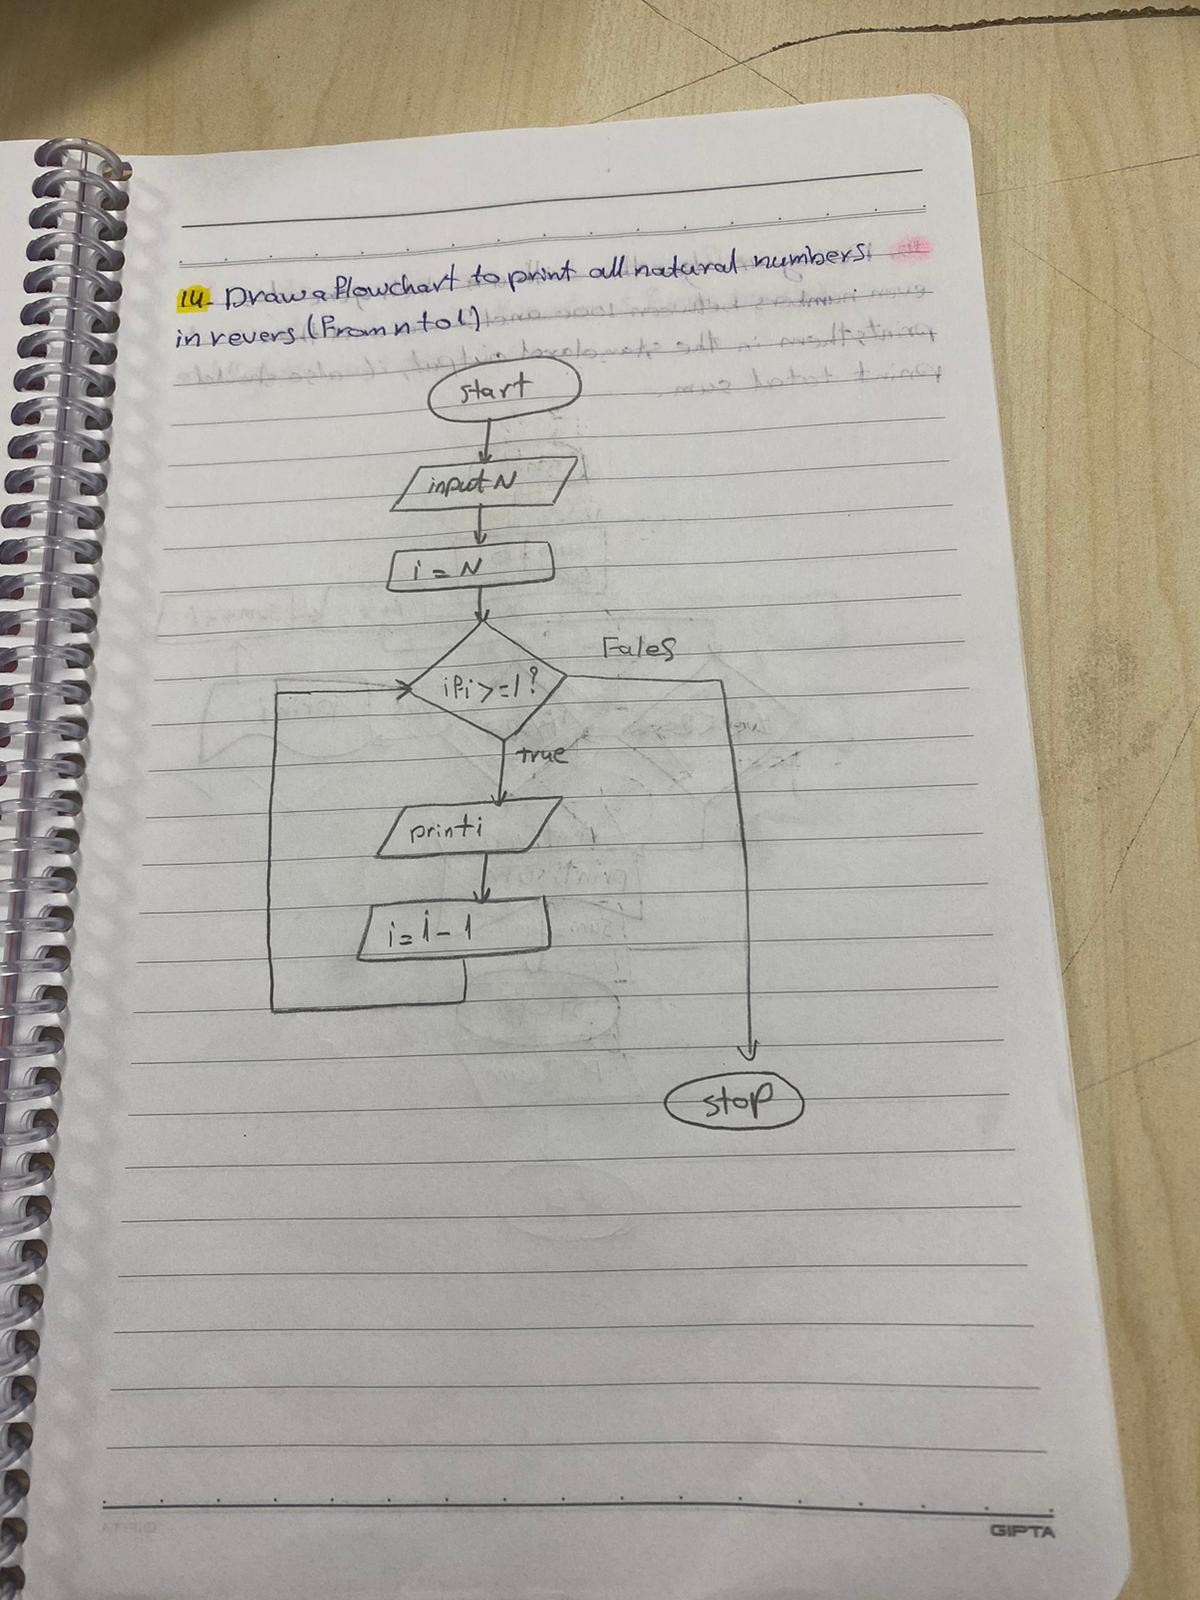 14- Draw a flowchart to print all natural numbers
in revers (from n to 1)
start
input N
i = N
if i >= 1 ?
Fales
true
print i
i = i - 1
stop
GIPTA